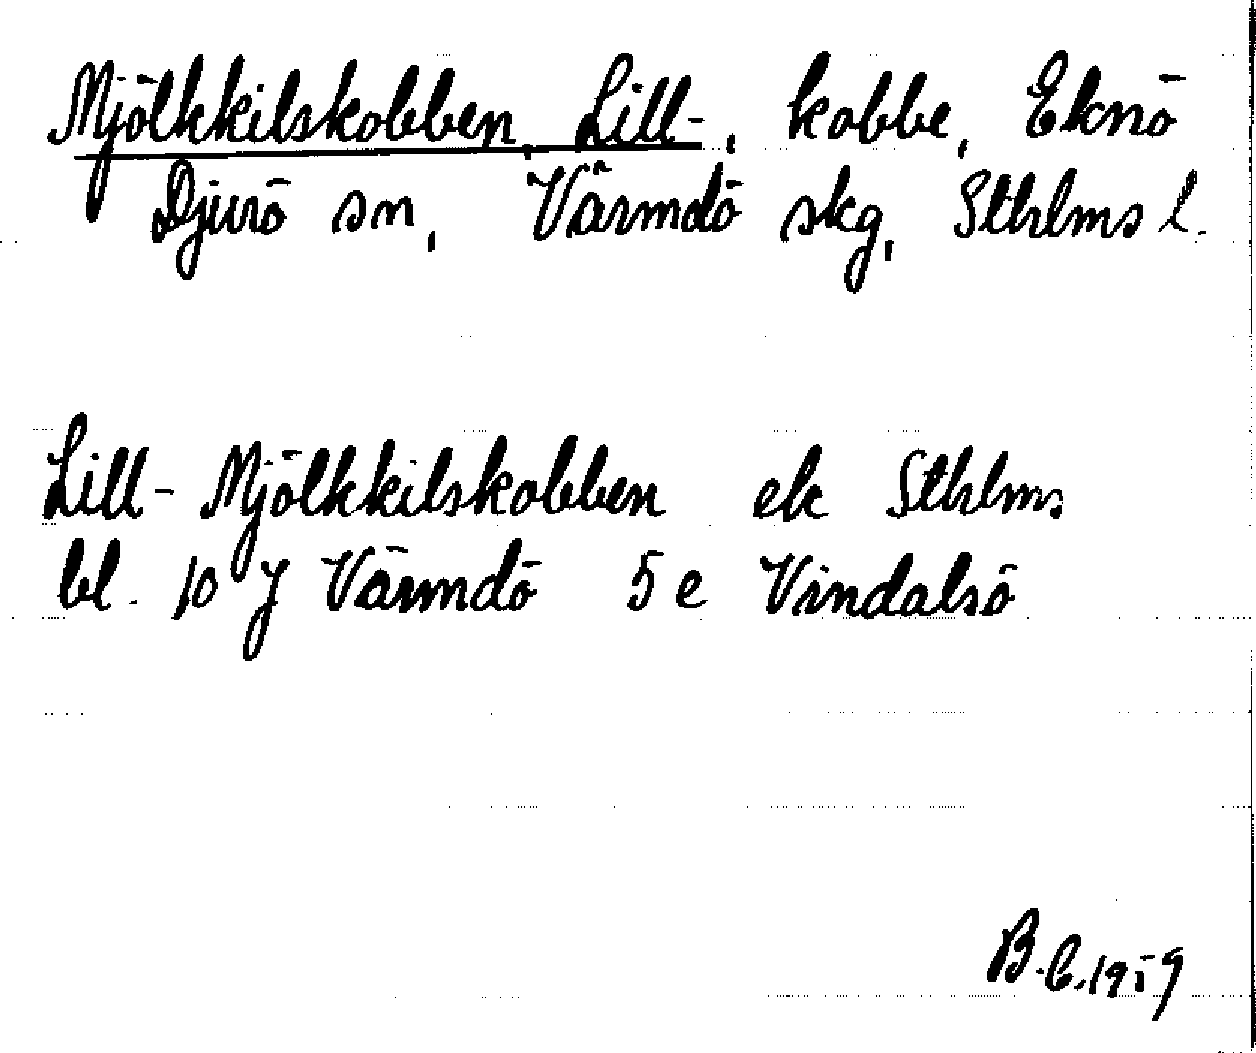 Mjölkkilskobben, Lill-, kobbe, Eknö
Djurö sn, Värmdö skg, Sthlms l.
Lill-Mjölkkilskobben ek Sthlms
bl. 10 J Värmdö 5 e Vindalsö
B.C. 1959